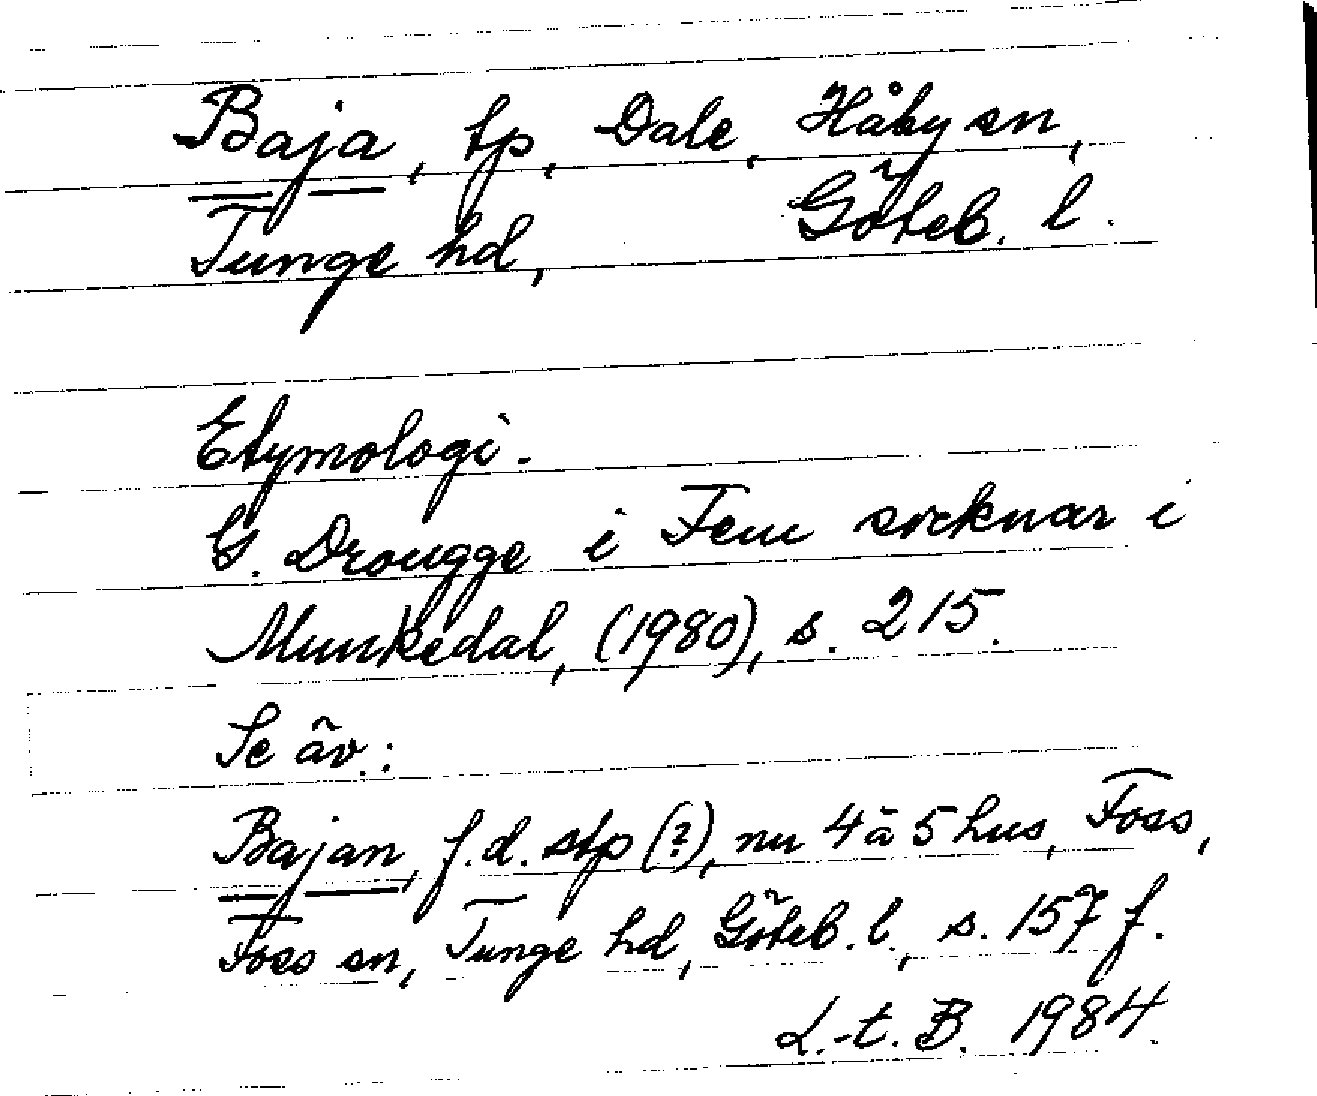 Baja, tp, Dale, Håby sn,
Tunge hd, Göteb. l.
Etymologi.
G. Drougge i Fem socknar i
Munkedal, (1980), s. 215.
Se äv.:
Bajan, f.d. stp (?), nu 4 à 5 hus, Foss,
Foss sn, Tunge hd, Göteb. l., s. 157 f.
L.-t. B. 1984.